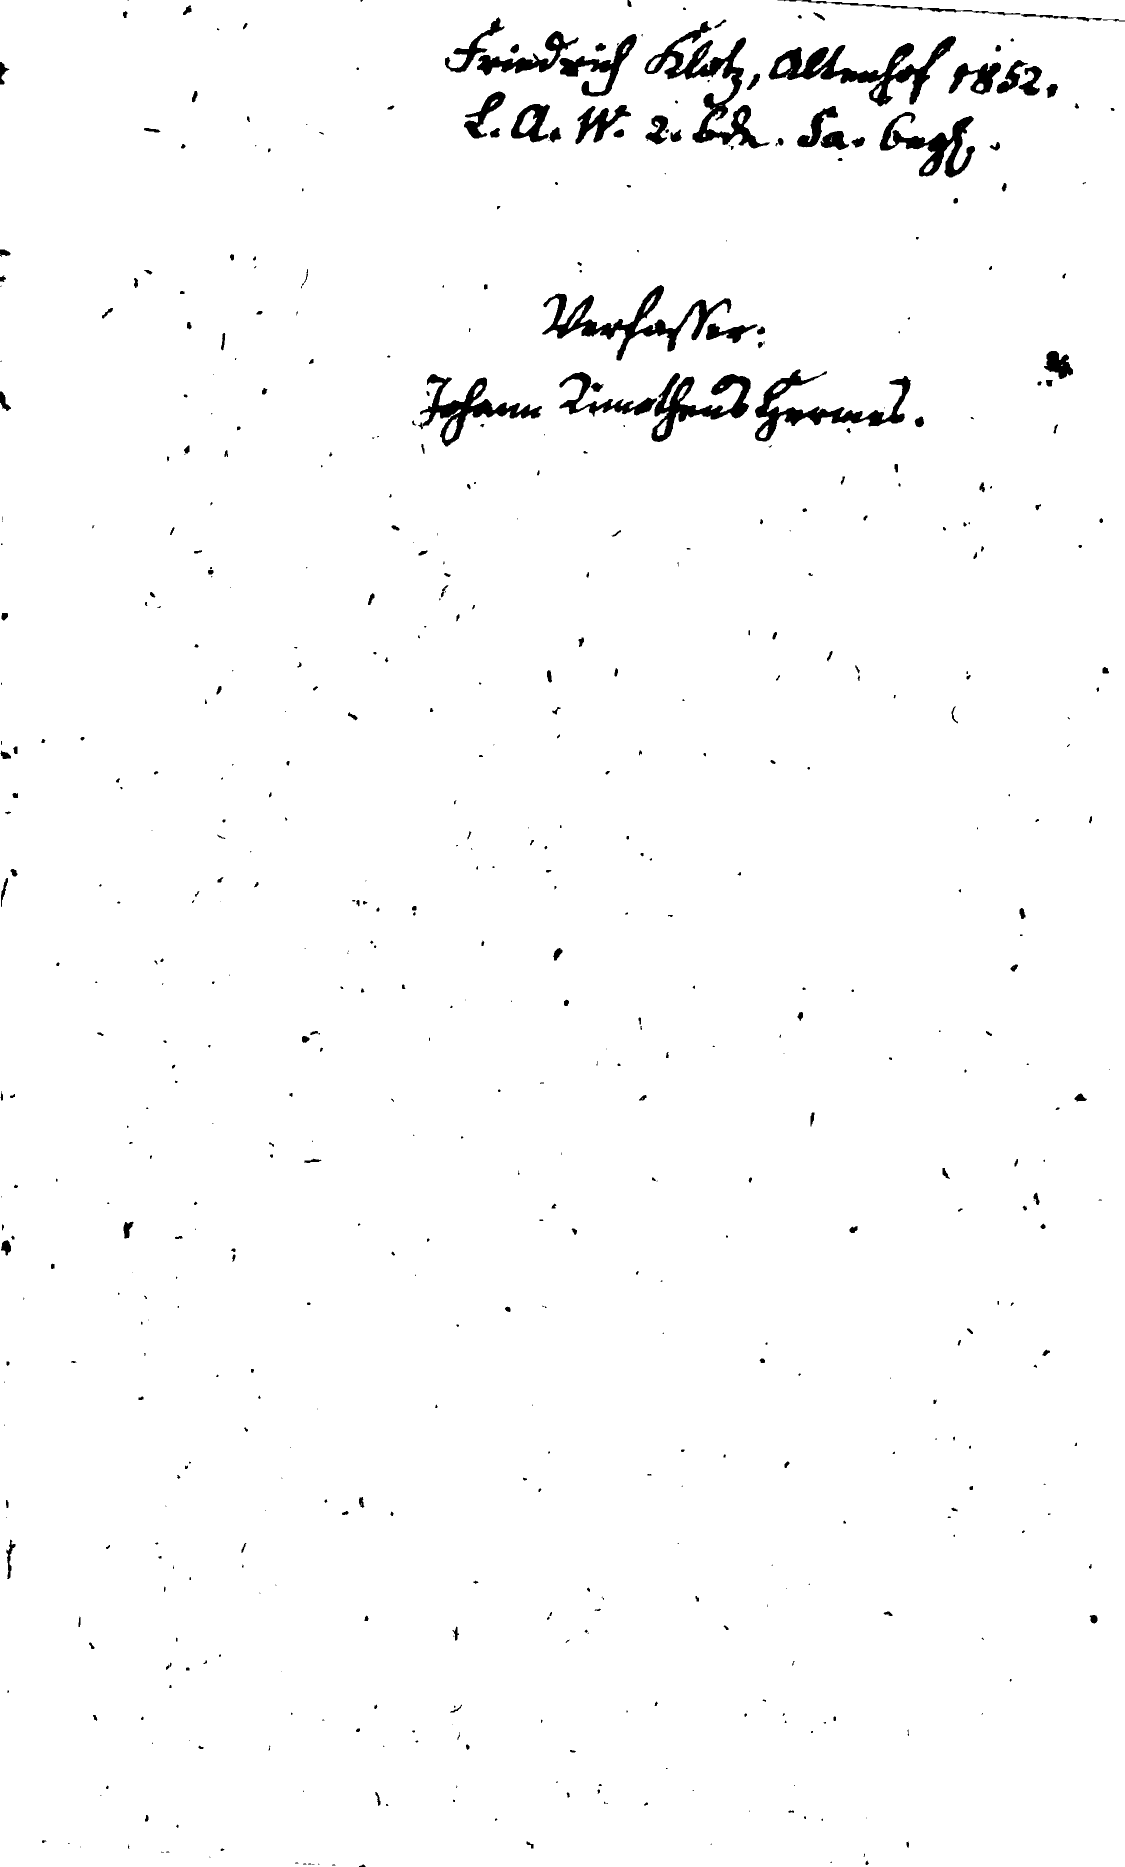 Friedrich Klotz, Altenhof 1852.
L. A. W. 2. Bde. Sa.
Verfasser:
Johann Timotheus Hermes.